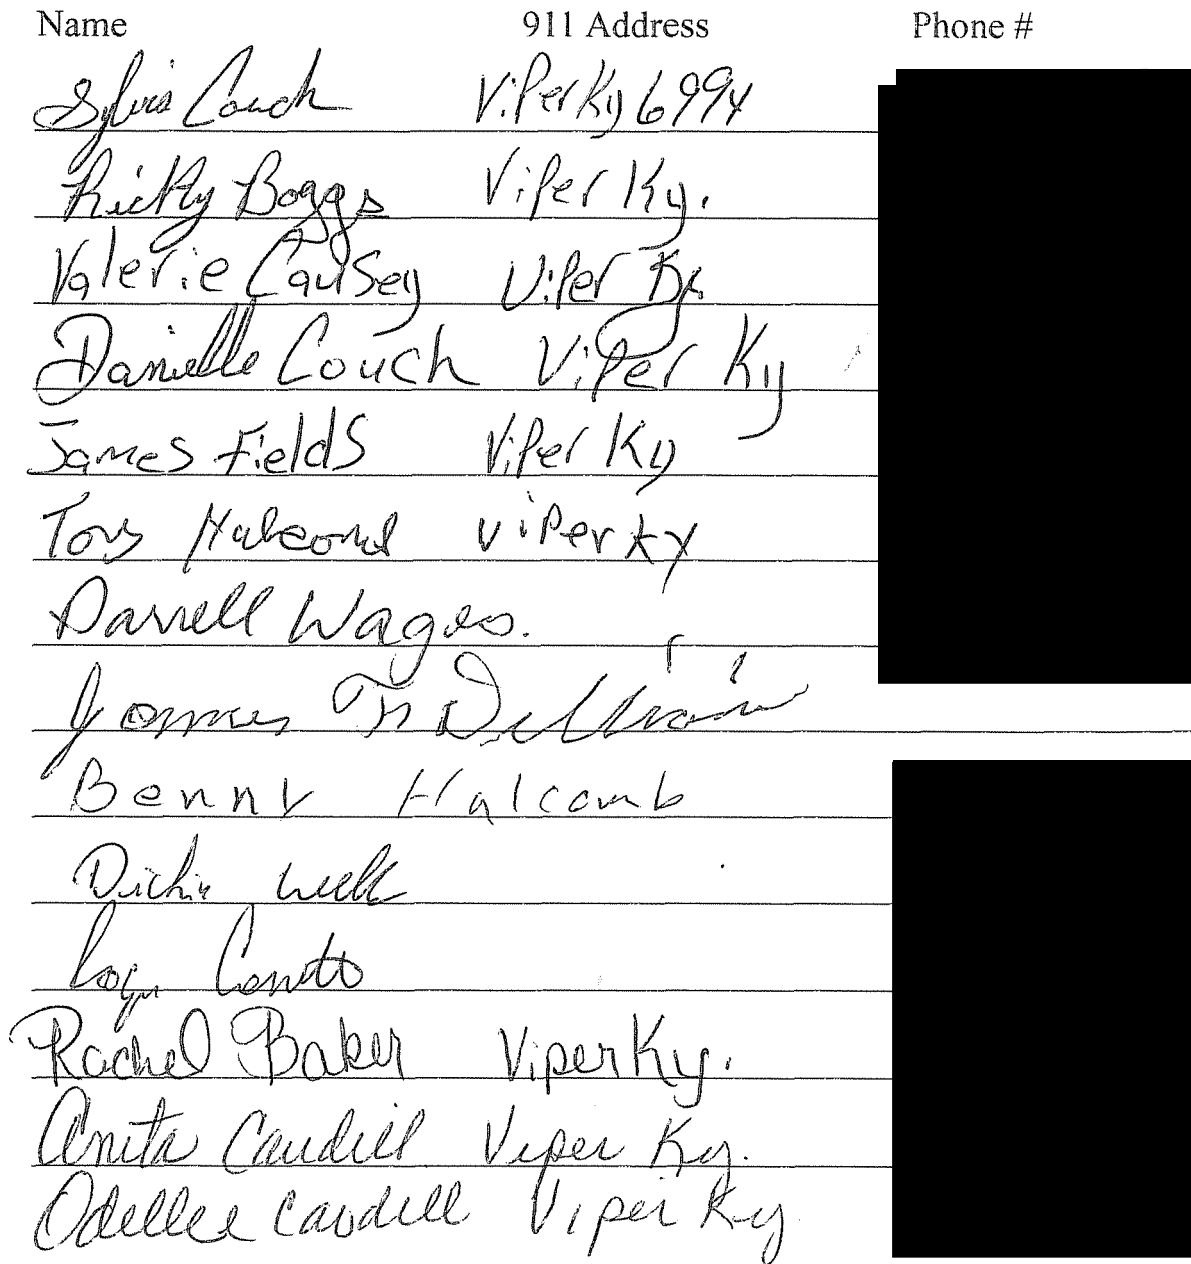 Name 911 Address Phone #
Sylvia Couch Viper Ky 6994
Ricky Boggs Viper Ky.
Valerie Causey Viper Ky.
Danielle Couch Viper Ky
James Fields Viper Ky
Tony Viper Ky
Darrell Wages.
James
Benny Halcomb
Dickie
Roger
Rachel Baker Viper Ky.
Anita Caudill Viper Ky.
Odellee Caudill Viper Ky